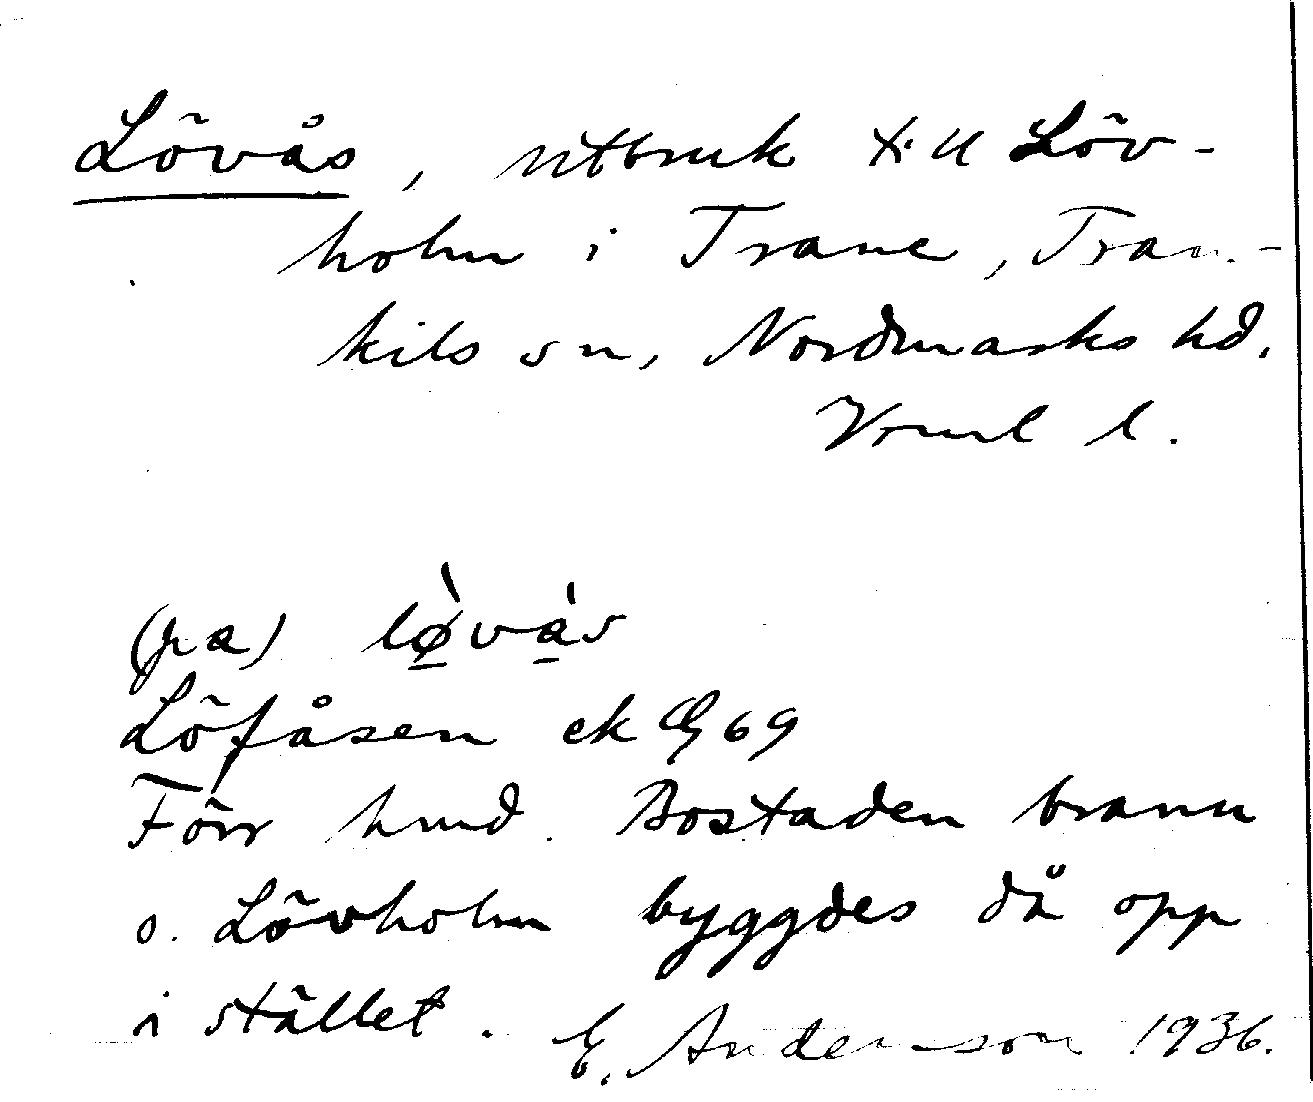 Lövås, utbruk till Löv-
holm i Trane, Tran-
kils sn, Nordmarks hd.
Vrml l.
(pa) lø̀vàs
Löfåsen ek G 69
Förr hmd. Bostaden brann
o. Lövholm byggdes då opp
i stället. E. Anderson 1936.